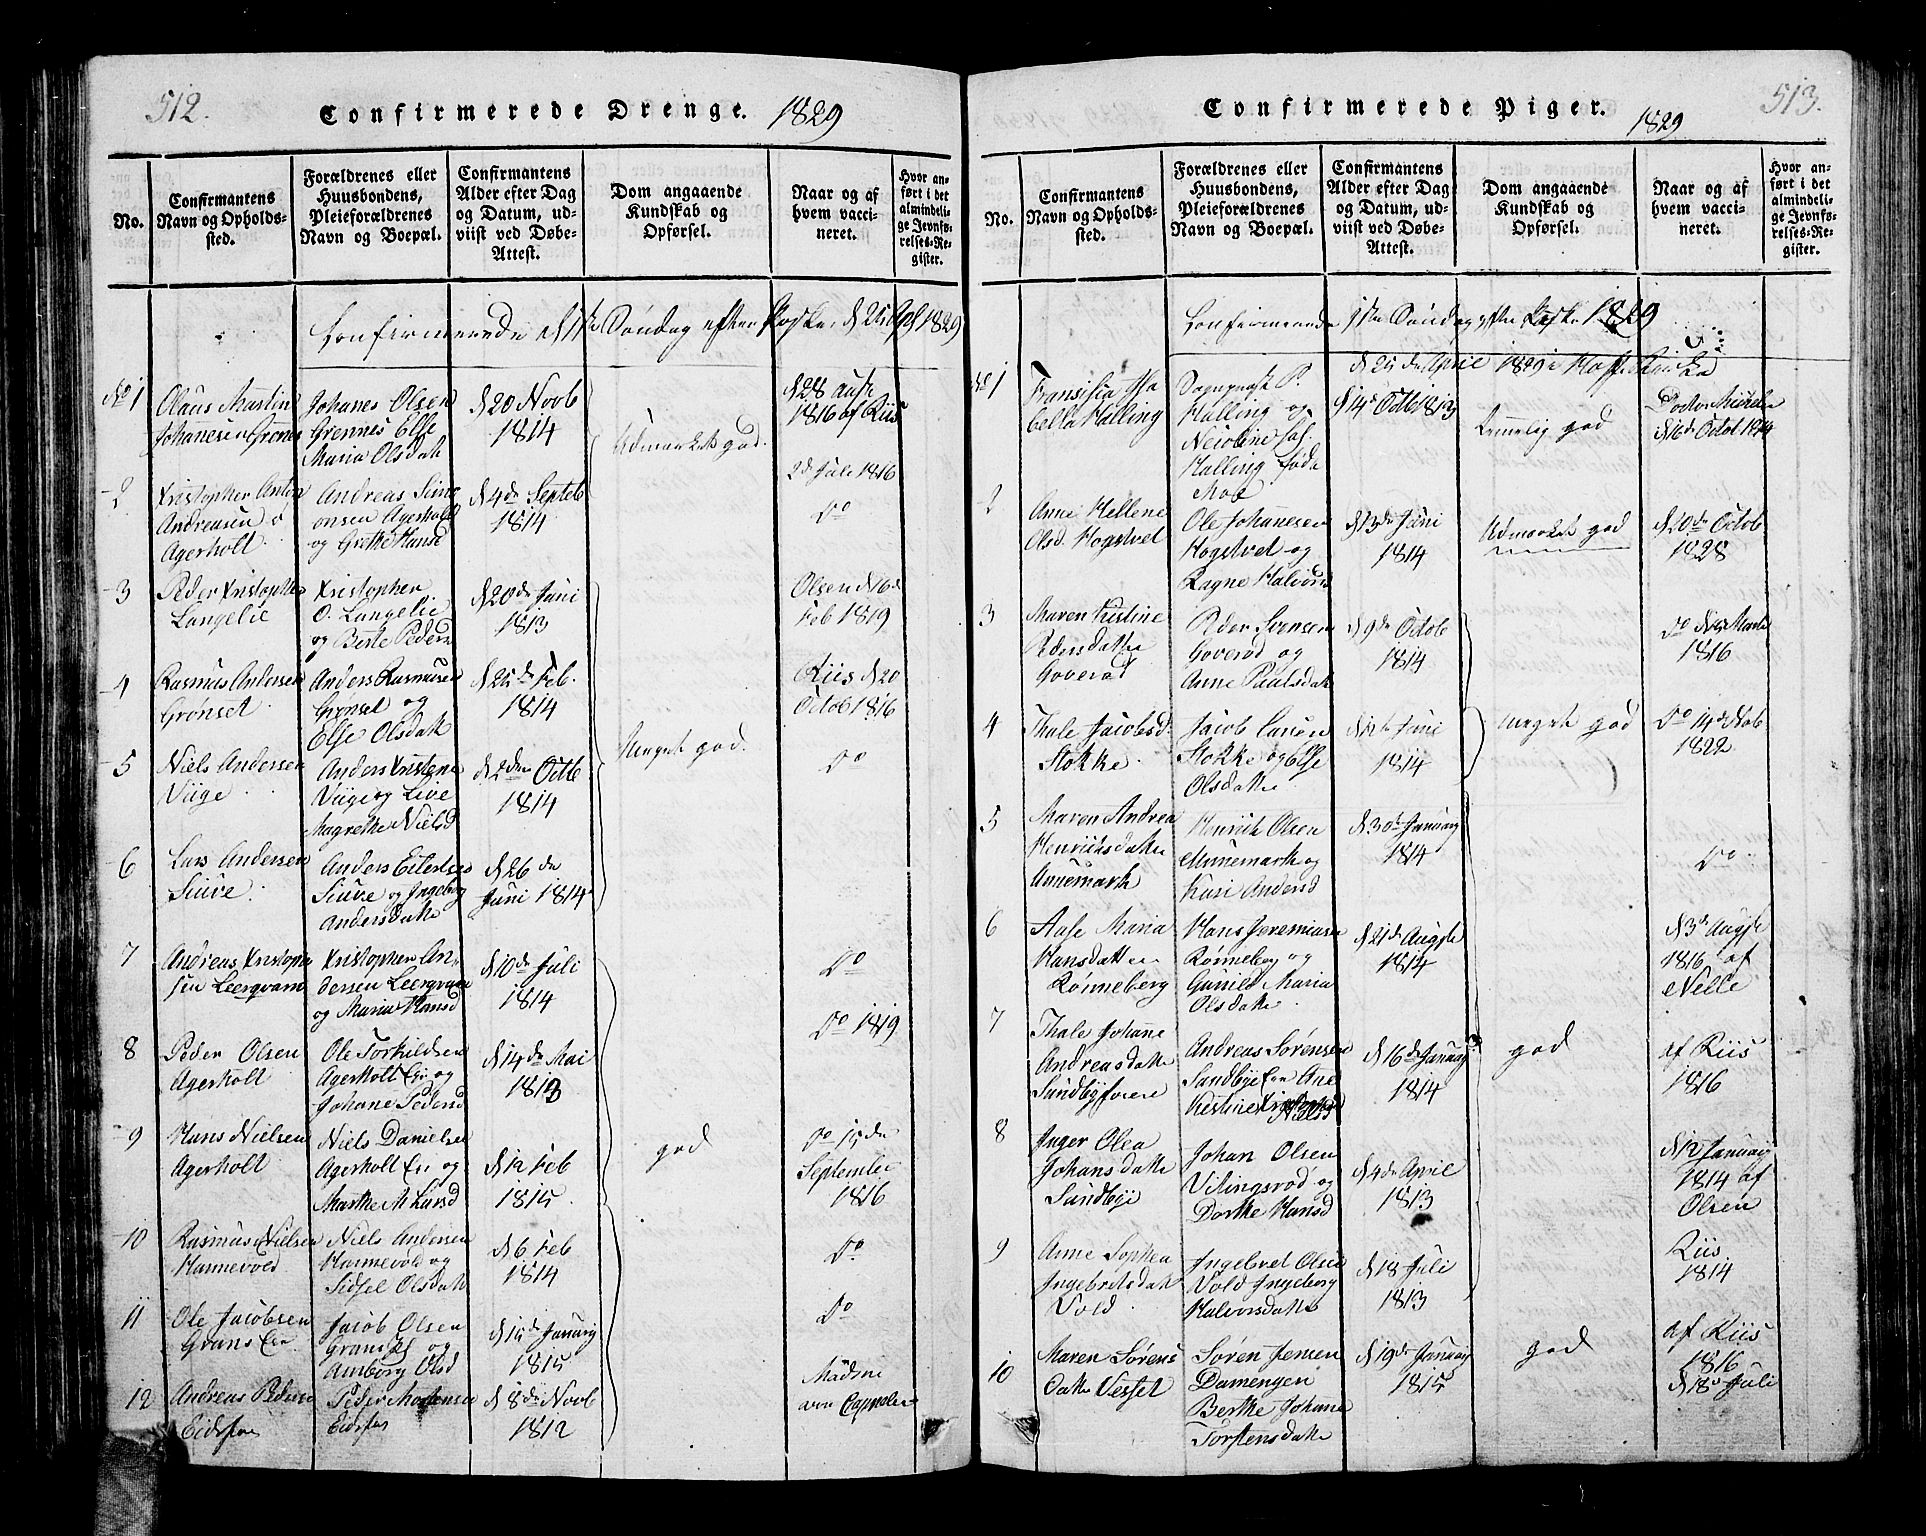 512.
Confirmerede Drenge. 1829
No.
Confirmantens
Navn og Opholds-
sted.
Forældrenes eller
Huusbondens,
Pleieforældrenes
Navn og Boepæl.
Confirmantens
Alder efter Dag
og Datum, ud-
viist ved Døbe-
Attest.
Dom angaaende
Kundskab og
Opførsel.
Naar og af
hvem vacci-
neret.
Hvor an-
ført i det
almindeli-
ge Jevnfø-
relses-Re-
gister.
Confirmerede Søndag efter Paaske 1829
No 1
Olaus Martin
Johanesen Grenes
Johanes Olsen
Grennes Else
Maria Olsdatt
d 20 Novb
1814
Udmærket god.
1816 af Riis
2
Kristopher Anton
Andreasen
Agerholt
Andreas Sim-
onsen Agerholt
og Grethe Hansd
d 4de Septeb
1814
2d Juli 1816
Do
3
Peder Kristophe
Langelie
Kristopher
O. Langelie
og Berte Peders
d 20de Juni
1813
Olsen d 16d
Feb 1819
4
Rasmus Andersen
Grønset
Anders Rasmusen
Grønset og
Else Olsdatt
d 25de Feb.
1814
Meget god.
Riis d 20
Octob 1816
5
Niels Andersen
Viige
Anders Kristense
Viige og Live
Magrethe Nielsd
d 2den Octb
1814
Do
6
Lars Andersen
Siuve
Anders Eilertsen
Siuve og Ingeborg
Andersdatte
d 26de
Juni 1814
7
Andreas Kristophe
sen Leerqvam
Kristopher An-
dersen Leerqvam
og Maria Hansd
d 10de Juli
1814
Do
8
Peder Olsen
Agerholt
Ole Torkildsen
Agerholt Eie og
Johane Pedersd
d 14de Mai
1813
Do 1819
9
Hans Nielsen
Agerholt
Niels Danielsen
Agerholt Eie og
Marthe M Larsd
d 12 Feb
1815.
god
Do 15de
September
1816
10
Rasmus Nielsen
Hannevold
Niels Andersen
Hannevold og
Sidsel Olsdatt
d 6 Feb
1814
Do
11
Ole Jacobsen
Grans Eie
Jacob Olsen
Grans Ei og
Amborg Olsd
d 15de Januarij
1815
Do
12
Andreas Pederse
Eidsfos
Peder Mortensen
Eidsfos
d 8de Novb
1812
Madme
von Cappelen
513.
Confirmerede Piger. 1829
No.
Confirmantens
Navn og Opholds-
sted.
Forældrenes eller
Huusbondens,
Pleieforældrenes
Navn og Boepæl.
Confirmantens
Alder efter Dag
og Datum, ud-
viist ved Døbe-
Attest.
Dom angaaende
Kundskab og
Opførsel.
Naar og af
hvem vacci-
neret.
Hvor an-
ført i det
almindeli-
ge Jevnfø-
relses-Re-
gister.
Confirmerede 1ste Søndag efter Paaske 1829
April 1829 i Hof Kirke
No 1
Fransisca Isa
bella Halling
Sogneprest P.
Halling og
Halling føde
Moe
d 14d Octb 1813
Temelig god
d 16de Octob 1814
2
Anne Hellene
Olsd. Hogstvet
Ole Johannesen
Hogstvet og
Ragne Halvorsd
d 13de Juni
1814
Udmærket god
d 20de Octob
1828
3
Maren Kistine
Pedersdatte
Goverød
Peder Svensen
Goverød og
Anne Paulsdatt
d 9de Octob
1814
1816
4
Thale Jacobsd.
Stokke
Jacob
Stokke og Else
Olsdatte
Juni
1814
meget god
Do 14de Nob
1822
5
Maren Andrea
Henriksdatte
Annemark
Henrik Olsen
Annemark og
Kari Andersd
d 30de Januarij
1814
Do
6
Aase Maria
Hansdatte
Rønneberg
Hans Jeremiasen
Rønneberg og
Gunild Maria
Olsdatte
d 21de Augste
1814
d 3d Augste
1816 af
Nelle
7
Thale Johanne
Andreasdatte
Sandbyfoere
Andreas Sørensen
Sandbyeie Ane
Kistine Nielsd
d 16de Januarij
1814
god
af Riis
1816
8
Inger Olea
Johansdatte
Sandbye
Johan Olsen
Vilingsrød og
Dorthe Hansd
d 4de April
1813
d 12 Januarij
1814 af
Olsen
9
Anne Sophea
Ingebretsdatt
Vold
Ingebret Olsen
Vold Ingeborg
Halvorsdatte
d 18 Juli
1813
Riis
1814
10
Maren Sørens
Datte Vesset
Søren Jensen
Damengen
Berthe Johane
Torstensdatte
d 19de Januarij
1815
god
af Riis
1816
d 18d Juli